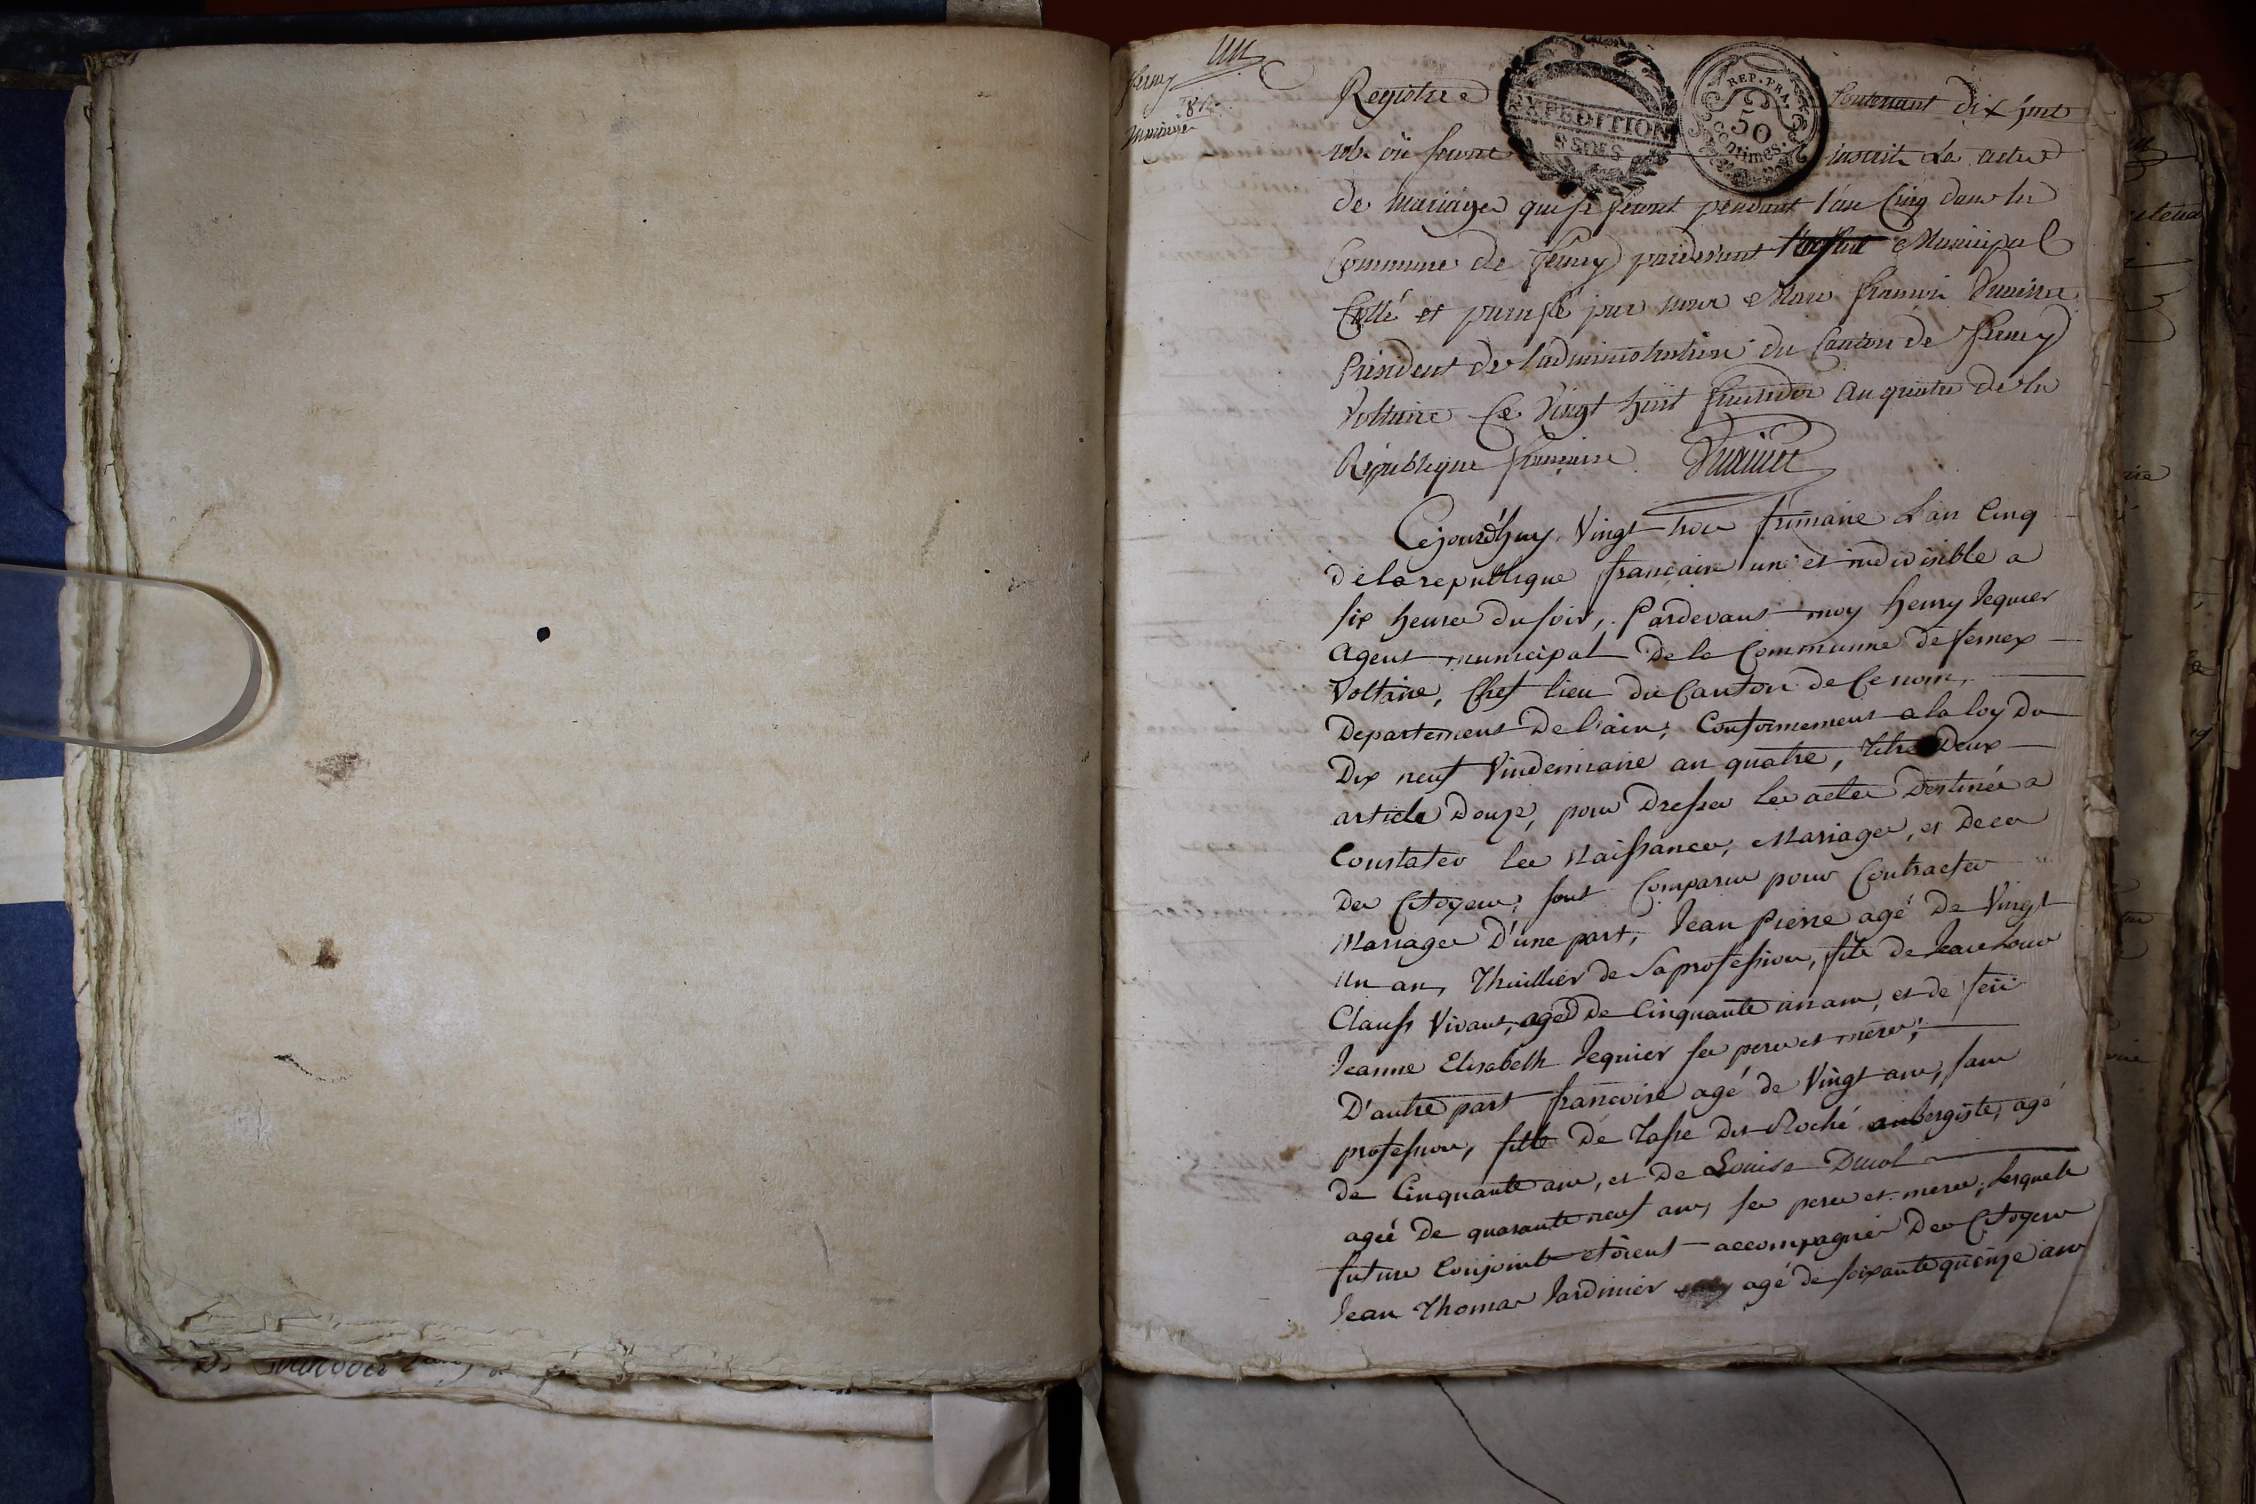 un
Ferney
Mariages
Registre
EXPEDITION
8 SOLS
REP. FRA.
50
centimes.
Contenant dix sept
rôle où seront inscrit les actes
de mariages qui se feront pendant l'an Cinq dans la
Commune de ferney pardevant Municipal
Cotté et paraffé par nous Marc François
Président de l'administration du Canton de ferney
Voltaire Ce Vingt huit fructidor an quatre de la
République française
Cejourd'huy Vingt trois frimaire L'an Cinq
de la republique francaise une et indivisible a
six heures du soir, Pardevant moy henry Jequier
agent municipal De la Commune de fernex
Voltaire, Chef lieu du Canton de Ce nom,
Departement De l'ain; Conformement a la loy Du
Dix neuf Vindemiaire an quatre, titre Deux
article Douze, pour Dresser les actes Destinés a
Constater les Naissances, Mariages, et Deces
Des Citoyens; sont Comparus pour Contracter
Mariages D'une part, Jean Pierre agé De Vingt
un ans, Thuillier de Sa profession, fils de Jean Louis
Clauss Vivant, aged De Cinquante un ans, et de feü
Jeanne Elisabeth Jequier ses peres et meres;
D'autre part francoise agé de Vingt ans, sans
profession, fille De Tasse Dit Roché aubergiste, agé
de Cinquante ans, et De Louise Ducol
ageé De quarante neuf ans, ses peres et meres; Lesquels
futurs Conjoints etoient accompagnés Des Citoyens
Jean Thomas Jardinier agé de soixante quinze ans